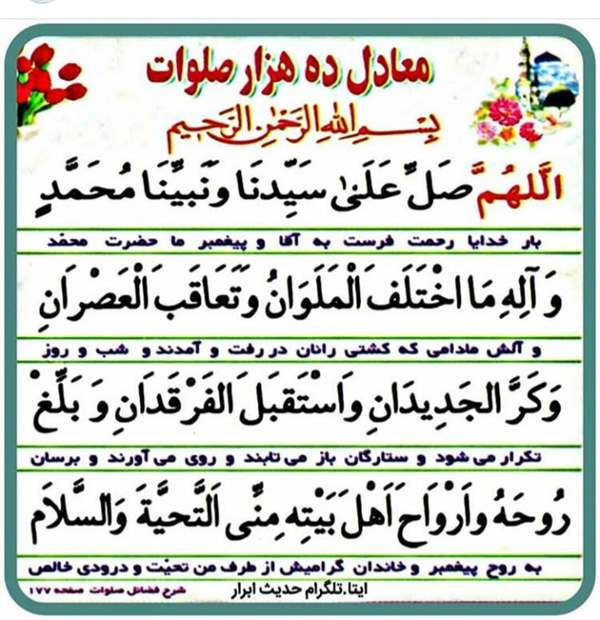 معادل ده هزار صلوات
بِسْمِ اللهِ الرَّحْمٰنِ الرَّحیمِ
اَللّٰهُمَّ صَلِّ عَلَیٰ سَیِّدِنَا وَنَبِیِّنَا مُحَمَّدٍ
بار خدایا رحمت فرست به آقا و پیغمبر ما حضرت محمّد
وَ آلِهِ مَا اخْتَلَفَ الْمَلَوَانُ وَتَعَاقَبَ الْعَصْرَانِ
و آلش مادامی که کشتی رانان در رفت و آمدند و شب و روز
وَکَرَّ الْجَدِیدَانِ وَاسْتَقْبَلَ الْفَرْقَدَانِ وَ بَلِّغْ
تکرار می شود و ستارگان باز می تابند و روی می آورند و برسان
رُوحَهُ وَاَرْوَاحَ اَهْلِ بَیْتِهِ مِنِّی التَّحِیَّةَ وَالسَّلَامَ
به روح پیغمبر و خاندان گرامیش از طرف من تحیّت و درودی خالص
ایتا.تلگرام حدیث ابرار
شرح فضائل صلوات صفحه ۱۷۷